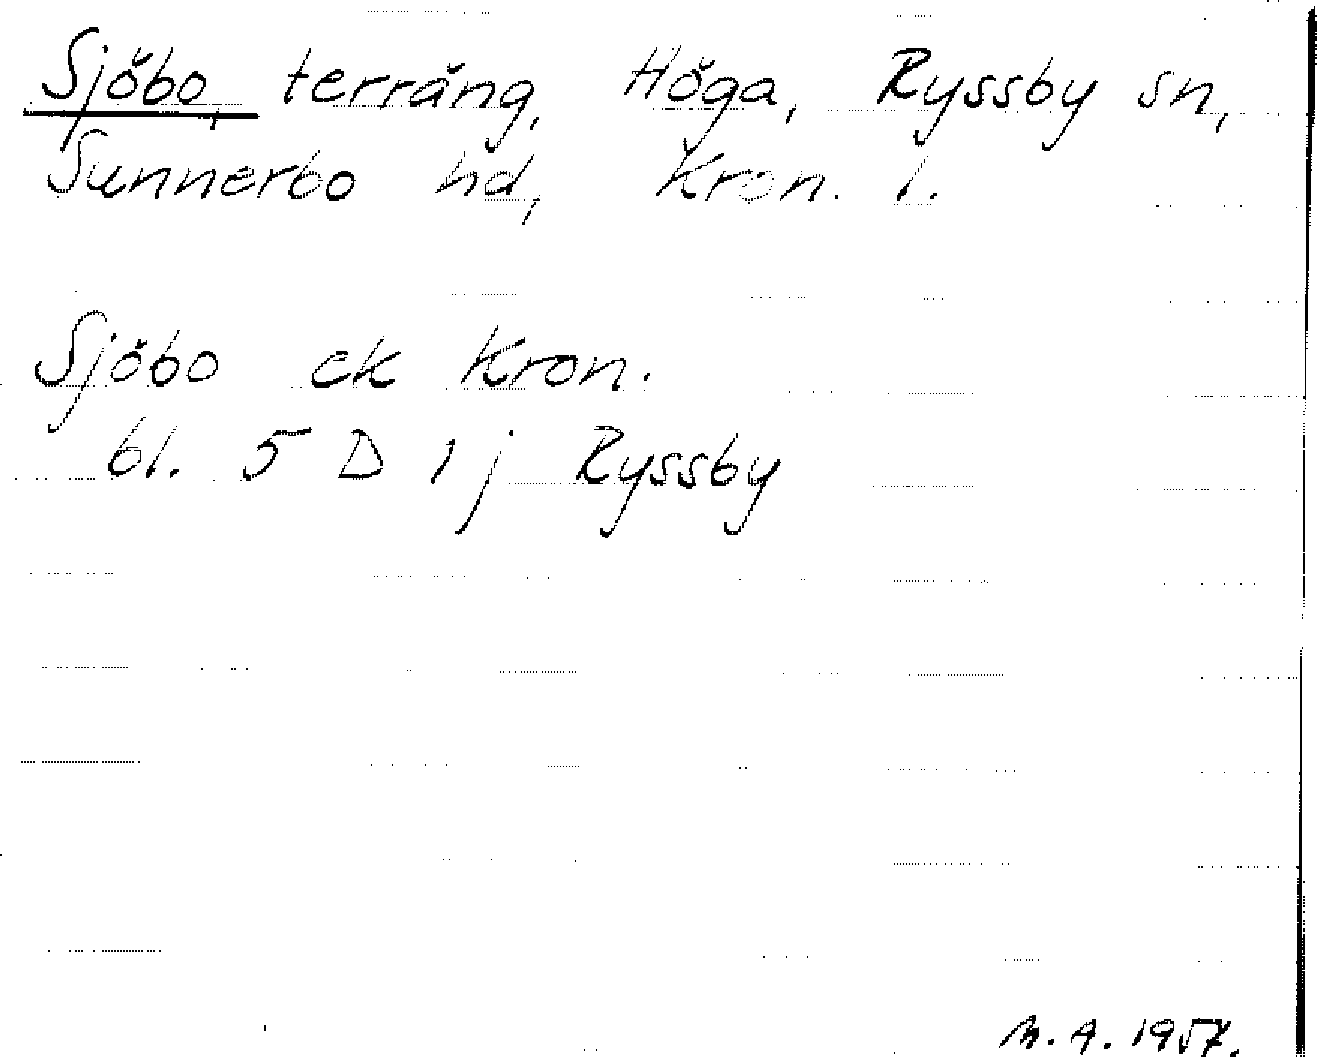 Sjöbo, terräng, Höga, Ryssby sn,
Sunnerbo hd, Kron. l.
Sjöbo ek Kron.
bl. 5 D 1 j Ryssby
M. A. 1957.